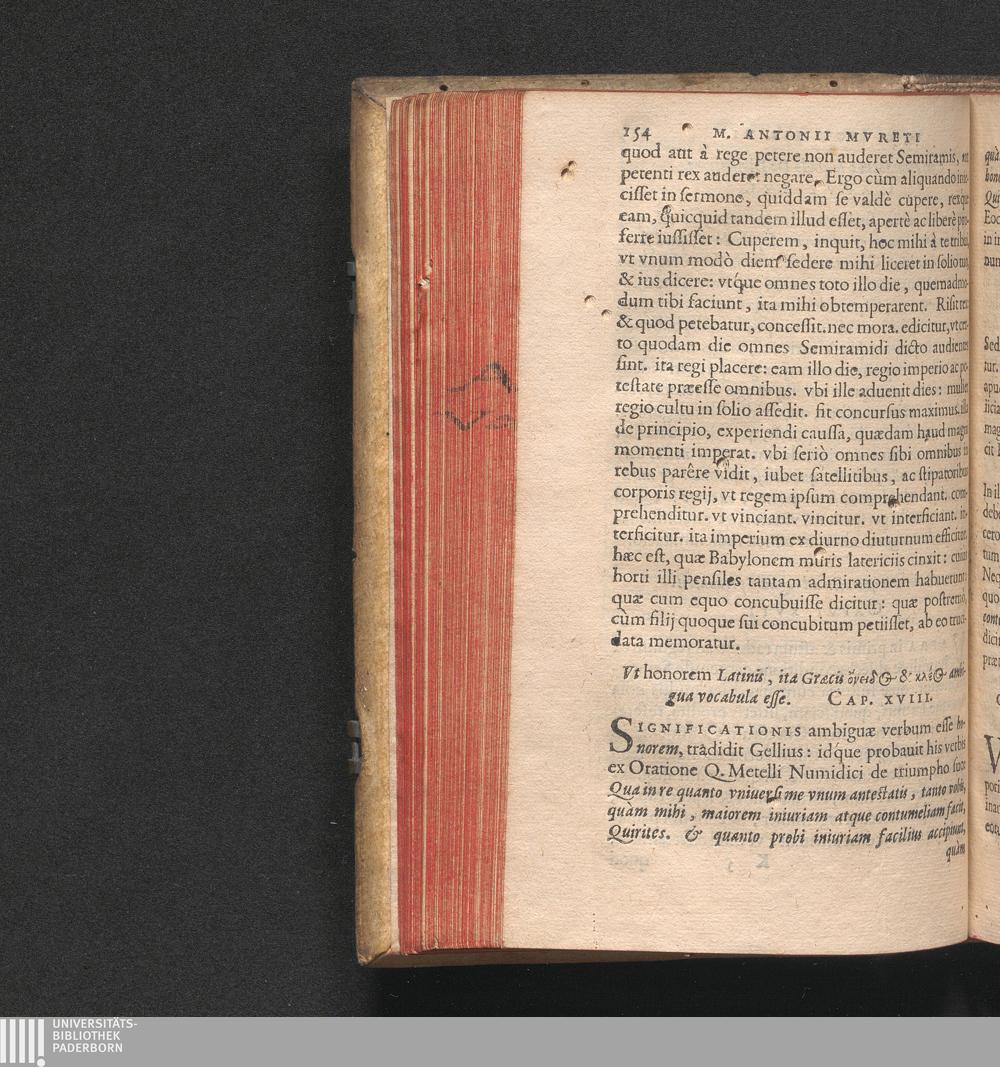 154 M. ANTONII MVRETI
quod aut à rege petere non auderet Semiramis,
petenti rex auderet negare. Ergo cùm aliquando
cisset in sermone, quiddam se valdè cupere,
eam, quicquid tandem illud esset, apertè ac liberè
ferre iussisset: Cuperem, inquit, hoc mihi à te
vt vnum modò diem sedere mihi liceret in solio
& ius dicere: vtque omnes toto illo die, quemadmo-
dum tibi faciunt, ita mihi obtemperarent. Risit
& quod petebatur, concessit. nec mora. edicitur, vt
to quodam die omnes Semiramidi dicto audientes
sint. ita regi placere: eam illo die, regio imperio ac po-
testate præesse omnibus. vbi ille aduenit dies: mulier
regio cultu in solio assedit. fit concursus maximus.
de principio, experiendi caussa, quædam haud magni
momenti imperat. vbi seriò omnes sibi omnibus in
rebus parêre vidit, iubet satellitibus, ac stipatoribus
corporis regij, vt regem ipsum comprehendant. com-
prehenditur. vt vinciant. vincitur. vt interficiant. in-
terficitur. ita imperium ex diurno diuturnum efficitur.
hæc est, quæ Babylonem muris latericiis cinxit: cuius
horti illi pensiles tantam admirationem habuerunt:
quæ cum equo concubuisse dicitur: quæ postremò,
cùm filij quoque sui concubitum petiisset, ab eo truci-
data memoratur.
Vt honorem Latinis, ita Græcis ὄνειδος & κλέος ambi-
gua vocabula esse. CAP. XVIII.
SIGNIFICATIONIS ambiguæ verbum esse ho-
norem, tradidit Gellius: idque probauit his verbis
ex Oratione Q. Metelli Numidici de triumpho suo:
Qua in re quanto vniuersi me vnum antestatis, tanto vobis,
quam mihi, maiorem iniuriam atque contumeliam facit,
Quirites. & quanto probi iniuriam facilius accipiunt,
quàm
Eod
Sed
tur.
In il
debe
cero
tum
Neq
quo
dici
V
UNIVERSITÄTS-
BIBLIOTHEK
PADERBORN